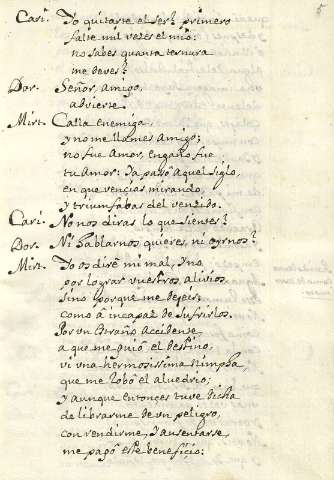 5
Cari. Yo quitarte el ser? primero
falte mil vezes el mio:
no sabes quanta ternura
me deves?
Dor. Señor, Amigo,
advierte.
Mirt. Calla enemiga,
y no me llames Amigo;
no fue Amor, engaño fue
tu Amor: Ya pasó aquel siglo,
en que vencias mirando,
y triumfabas del vencido.
Cari. No nos diras lo que sientes?
Dor. Ni hablarnos quieres, ni oyrnos?
Mirt. Yo os diré mi mal, y no
por lograr vuestros alivios
sino porque me dejeis;
como à incapaz de sufrirlos.
Por un estraño Accidente
a que me guió el destino,
vi una hermosissima Nimpha,
que me robó el aluedrio;
y aunque entonces tuve dicha
de librarme de un peligro,
con rendirme, y ausentarse,
me pagó este beneficio: